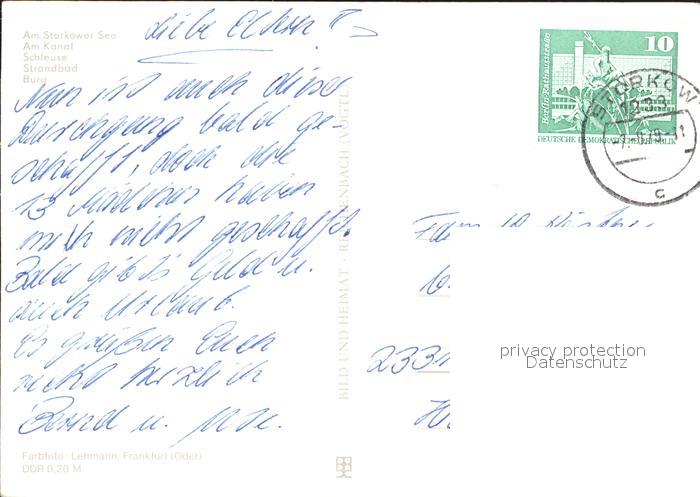 Am Storkower See
Am Kanal
Schleuse
Strandbad
Burg
Liebe Eltern!
Nun ist auch dieser
Durchgang bald ge-
schafft, doch die
13 Mädchen haben
mich nicht geschafft.
Bald gibt's Geld u.
auch Urlaub.
Es grüßen Euch
recht herzlich
Bernd u.
Farbfoto: Lehmann, Frankfurt (Oder)
DDR 0,20 M
BILD UND HEIMAT · REICHENBACH (VOGTL)
10
Berlin, Rathausstraße
DEUTSCHE DEMOKRATISCHE REPUBLIK
STORKOW
c
Fam.
233
privacy protection
Datenschutz